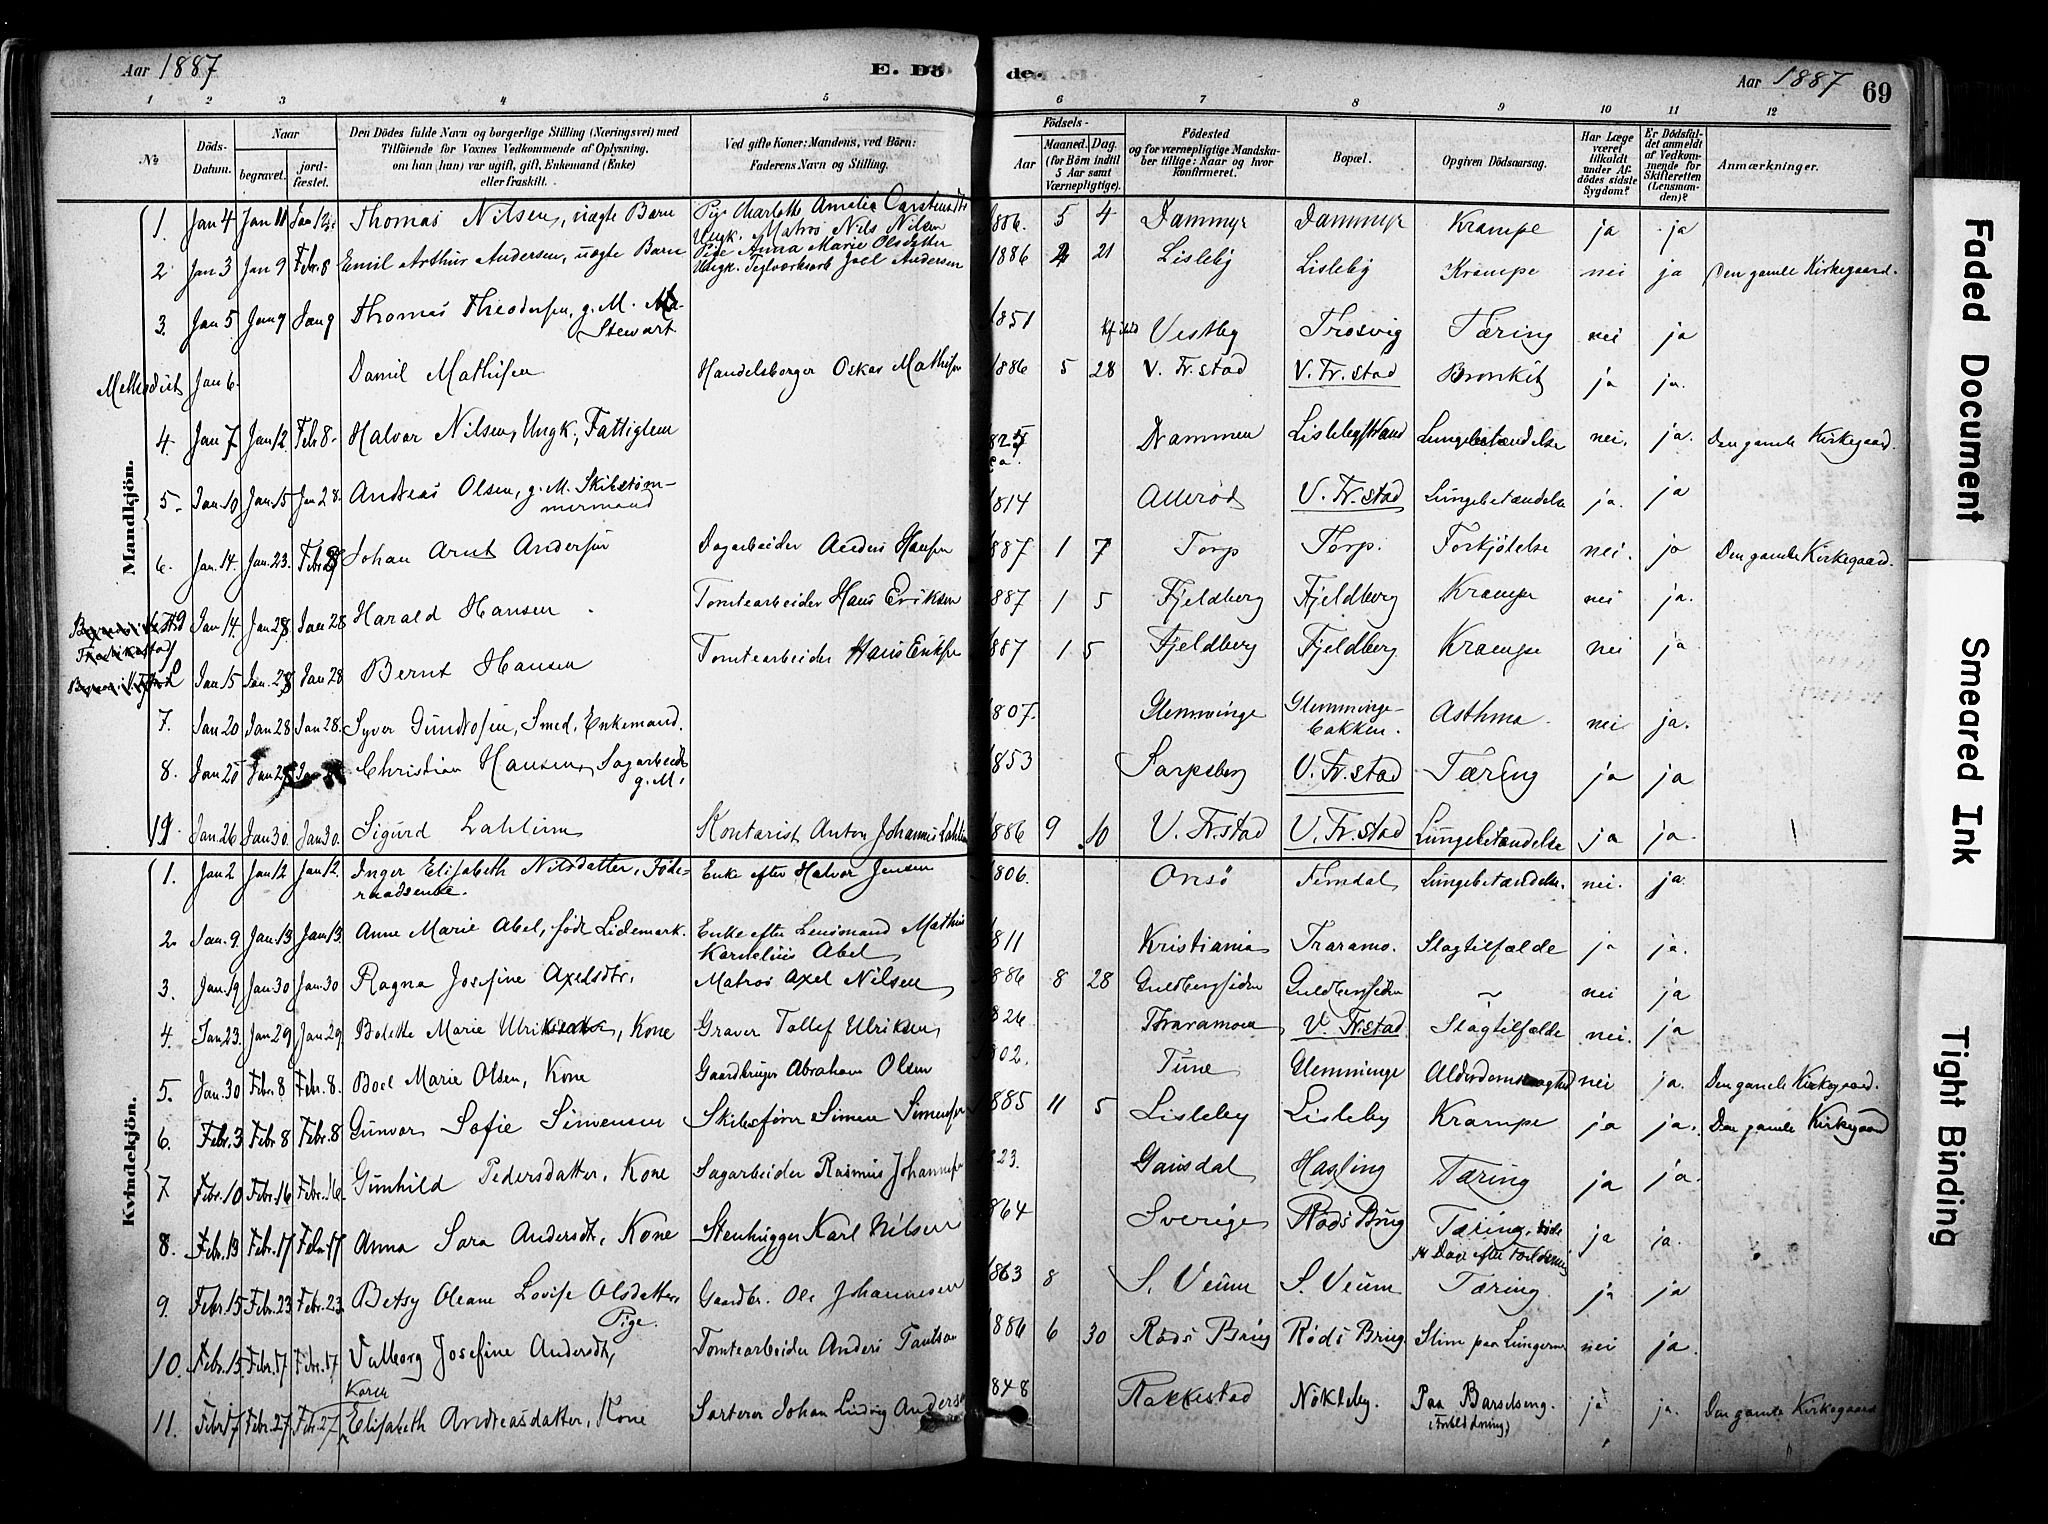 Aar 1887 E. Dö de. Aar 1887 69
1 2 3 4 5 6 7 8 9 10 11 12
No Döds-Datum. Naar begravet. jordfæstet. Den Dödes fulde Navn og borgerlige Stilling (Næringsvei) med Tilföiende for Voxnes Vedkommende af Oplysning, om han (hun) var ugift, gift, Enkemand (Enke) eller fraskilt. Ved gifte Koner: Mandens, ved Børn: Faderens Navn og Stilling. Födsels- Aar Maaned. Dag. (for Börn indtil 5 Aar samt Værnepligtige). Födested og for værnepligtige Mandskaber tillige: Naar og hvor konfirmeret. Bopæl. Opgiven Dödsaarsag. Har Læge været tilkaldt under Afdödes sidste Sygdom? Er Dödsfaldet anmeldt af Vedkommende for Skifteretten (Lensmanden)? Anmærkninger.
Mandkjön.
1. Jan 4 Jan 11 Jan 12 Thomas Nilsen, uægte Barn Pige Charlotte Amalia Carstensdtr 1886. 5 4 Dammyr Dammyr Krampe ja ja
Ungk. Matros Nils Nilsen
2 Jan 3 Jan 9 Febr. 8 Emil Arthur Andersen, uægte Barn Pige Anna Marie Olsdatter 1886 4 21 Lisleby Lisleby Krampe nei ja Den gamle Kirkegaard.
Ungk. Teglværksarb Joel Andersen
3. Jan 5 Jan 9 Jan 9 Thomas Theodorsen, g. M. 1851 Vestby Trosvig Tæring nei ja
Stewart
Methodist Jan 6. Daniel Mathisen Handelsborger Oskar Mathisen 1886 5 28 V. Fr. stad V. Fr. stad Bronkit ja ja.
4. Jan 7 Jan 12. Feb 8. Halvor Nilsen, Ungk., Fattiglem ca. Drammen Lislebystrand Lungebetændelse nei. ja. Den gamle Kirkegaard.
5. Jan. 10 Jan. 15 Jan 28. Andreas Olsen, g. M. Skibstømmermand 1814 V. Fr. stad Lungebetændelse ja. ja
6. Jan. 14. Jan. 23. Febr. 8 Johan Arnt Andersen Dagarbeider Anders Hansen 1887 1 7 Torp Torp. Forkjölelse nei. ja Den gamle Kirkegaard.
Jan 14. Jan 28 Jan 28 Harald Hansen Tomtearbeider Hans Eriksen 1887 1 5 Fjeldberg Fjeldberg Krampe nei ja.
Jan 15 Jan. 28 Jan 28 Bernt Hansen Tomtearbeider Hans Eriksen 1887 1 5 Fjeldberg Fjeldberg. Krampe nei ja
7. Jan 20 Jan 28 Jan 28. Syver Gundrosen, Smed, Enkemand. 1807. Glemminge Glemmingebakken. Asthma nei ja.
8. Jan 25 Jan 28 Christian Hansen, Sagarbeider g. M. 1853 Sarpsborg V. Fr. stad Tæring ja ja
Jan. 26 Jan 30. Jan 30. Sigurd Lahlum Kontorist Anton Johannes Lahlum 1886 9 10 V. Fr. stad V. Fr. stad Lungebetændelse ja ja
Kvindekjön.
1. Jan 2 Jan 12 Jan 12. Inger Elisabeth Nilsdatter, Föderaadsenke. Enke efter Halvor Jensen 1806. Onsö Lungebetændelse. nei. ja
2. Jan. 9 Jan 13 Jan 13. Anne Marie Abel, født Lidemark. Enke efter Lensmand Mathias Kornelius Abel 1811 Kristiania Traramo. Slagtilfælde ja ja.
3. Jan. 19 Jan 30 Jan 30 Ragna Josefine Axelsdtr. Matros Axel Nilsen 1886 8 28 Guldbergsiden Guldbergsiden ~ nei ja
4. Jan 23. Jan 29 Jan 29. Bolette Marie Ulriksen, Kone Graver Tollef Ulriksen 1826 Traramoen V. Fr. stad Slagtilfælde nei. ja
5. Jan. 30 Febr. 8 Febr. 8. Boel Marie Olsen, Kone Gaardbruger Abraham Olsen 1802. Tune Glemminge Alderdomssvaghed nei ja. Den gamle Kirkegaard.
6. Febr. 3 Febr 8 Febr. 8 Gunvor Sofie Simensen Skibsfører Simen Simensen 1885 11 5 Lisleby Lisleby Krampe ja ja. Den gamle Kirkegaard
7 Febr. 10 Febr. 16 Febr. 16. Gunhild Pedersdatter, Kone Sagarbeider Rasmus Johannesen 1823. Gausdal Hasling Tæring ja ja.
8. Febr. 13 Febr. 17 Febr. 17 Anna Sara Andersdt, Kone Stenhugger Karl Nilsen 1864 Sverige Röds Brug Tæring, döde Dage efter Forlösning ja ja.
9. Febr. 15 Febr. 23 Febr. 23. Betsy Oleane Lovise Olsdatter, Pige. Gaardbr. Ole Johannesen 1863 8 S. Veum S. Veum Tæring. ja ja
10. Febr. 13 Febr. 17 Febr. 17 Valborg Josefine Andersdt, Tomtearbeider Anders Paulson 1886 6 30 Röds Brug Röds Brug Slim paa Lungerne nei ja.
11. Febr. 17 Febr. 27 Feb. 27 Karen Elisabeth Andreasdatter, Kone Sorterer Johan Ludvig Andersen 1848 Rakkestad Nökleby. Paa Barselseng. (Forblödning) ja ja. Den gamle Kirkegaard
Faded Document
Smeared Ink
Tight Binding